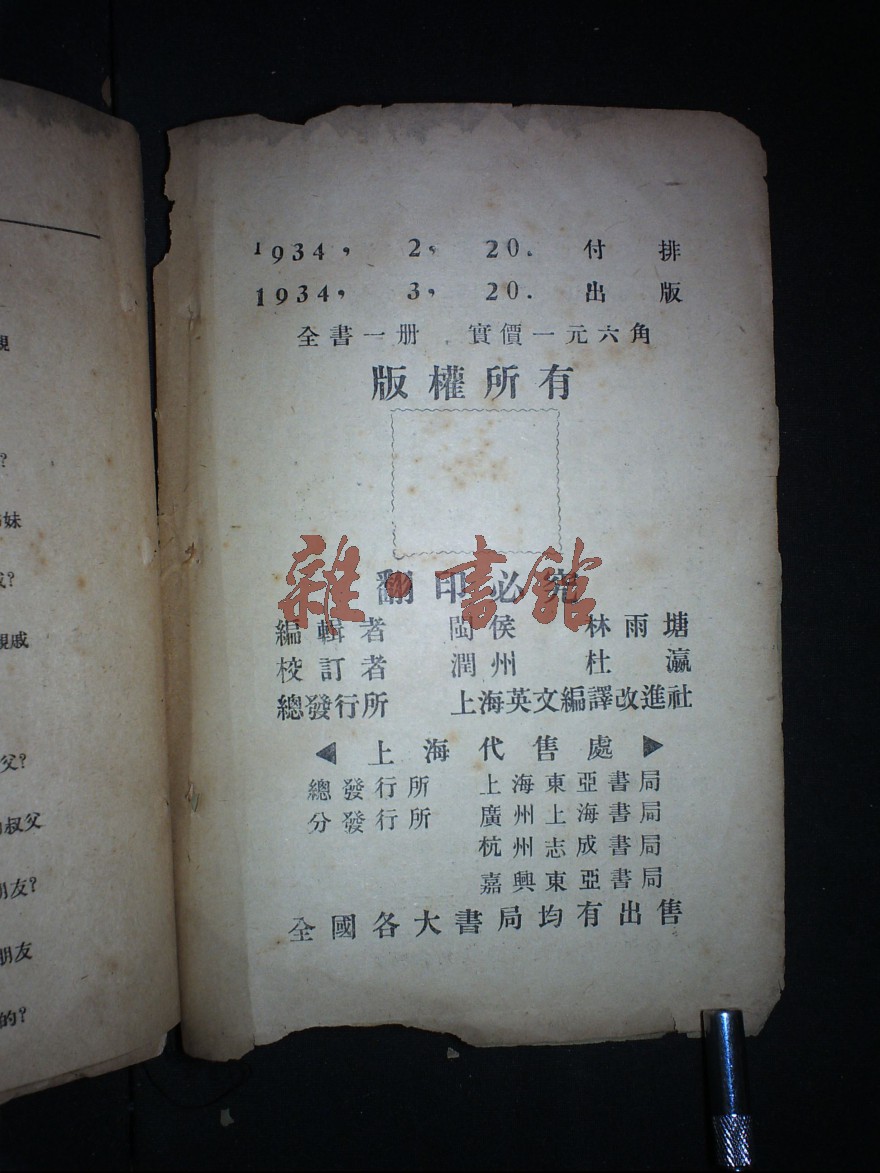 親
?
妹
?
親戚
父?
叔父
朋友?
朋友
的?
1934, 2, 20. 付排
1934, 3, 20. 出版
全書一册 實價一元六角
版權所有
翻印必究
雜·書館
編輯者 閩侯 林雨塘
校訂者 潤州 杜瀛
總發行所 上海英文編譯改進社
◀上海代售處▶
總發行所 上海東亞書局
分發行所 廣州上海書局
杭州志成書局
嘉興東亞書局
全國各大書局均有出售